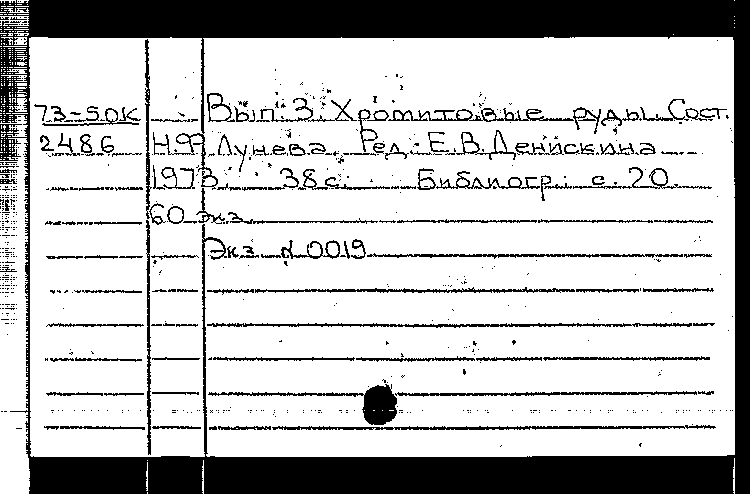 73-50К Вып. 3. Хромитовые руды. Сост.
2486 Н.Ф. Лунева. Ред. Е.В. Денискина
1973. 38 с. Библиогр.: с. 20.
60 экз.
Экз. N 0019